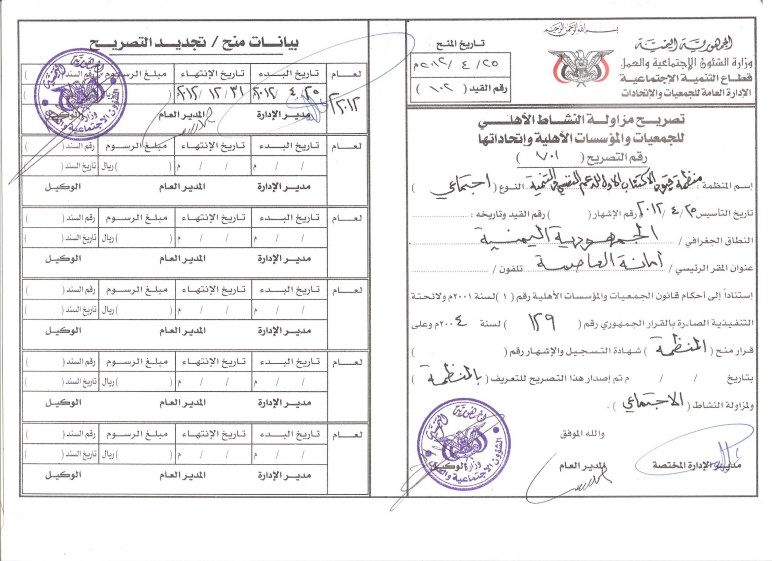 بسم الله الرحمن الرحيم
الجمهورية اليمنية
وزارة الشئون الإجتماعية والعمل
قطاع التنمية الإجتماعية
الإدارة العامة للجمعيات والإتحادات
تاريخ المنح
٢٥ / ٤ / ٢٠١٢م
رقم القيد ( ١٠٢ )
تصريح مزاولة النشاط الأهلي
للجمعيات والمؤسسات الأهلية وإتحاداتها
رقم التصريح ( ٧٠١ )
إسم المنظمة : منظمة الاكتتاب للدعم النفسي التنمية النوع ( اجتماعي )
تاريخ التأسيس ٢٥ / ٤ / ٢٠١٢ رقم الإشهار ( ) رقم القيد وتاريخه :
النطاق الجغرافي / الجمهورية اليمنية
عنوان المقر الرئيسي / أمانة العاصمة تلفون /
إستناداً إلى أحكام قانون الجمعيات والمؤسسات الأهلية رقم ( ١ ) لسنة ٢٠٠١م ولائحتة
التنفيذية الصادرة بالقرار الجمهوري رقم ( ١٢٩ ) لسنة ٢٠٠٤م وعلى
قرار منح ( المنظمة ) شهادة التسجيل والإشهار رقم ( )
بتاريخ / / م تم إصدار هذا التصريح للتعريف ( بالمنظمة )
ولمزاولة النشاط ( الاجتماعي ) .
والله الموفق
مدير الإدارة المختصة المدير العام الوكيل
بيانات منح / تجديد التصريح
لعام تاريخ البدء تاريخ الإنتهاء مبلغ الرسوم رقم السند ( )
٢٠١٢ ٢٥ / ٤ / ٢٠١٢ ٣١ / ١٢ / ٢٠١٢
مدير الإدارة المدير العام الوكيل
لعام تاريخ البدء تاريخ الإنتهاء مبلغ الرسوم رقم السند ( )
/ / م / / م ( ) ريال تاريخ السند ( )
مدير الإدارة المدير العام الوكيل
لعام تاريخ البدء تاريخ الإنتهاء مبلغ الرسوم رقم السند ( )
/ / م / / م ( ) ريال تاريخ السند ( )
مدير الإدارة المدير العام الوكيل
لعام تاريخ البدء تاريخ الإنتهاء مبلغ الرسوم رقم السند ( )
/ / م / / م ( ) ريال تاريخ السند ( )
مدير الإدارة المدير العام الوكيل
لعام تاريخ البدء تاريخ الإنتهاء مبلغ الرسوم رقم السند ( )
/ / م / / م ( ) ريال تاريخ السند ( )
مدير الإدارة المدير العام الوكيل
لعام تاريخ البدء تاريخ الإنتهاء مبلغ الرسوم رقم السند ( )
/ / م / / م ( ) ريال تاريخ السند ( )
مدير الإدارة المدير العام الوكيل